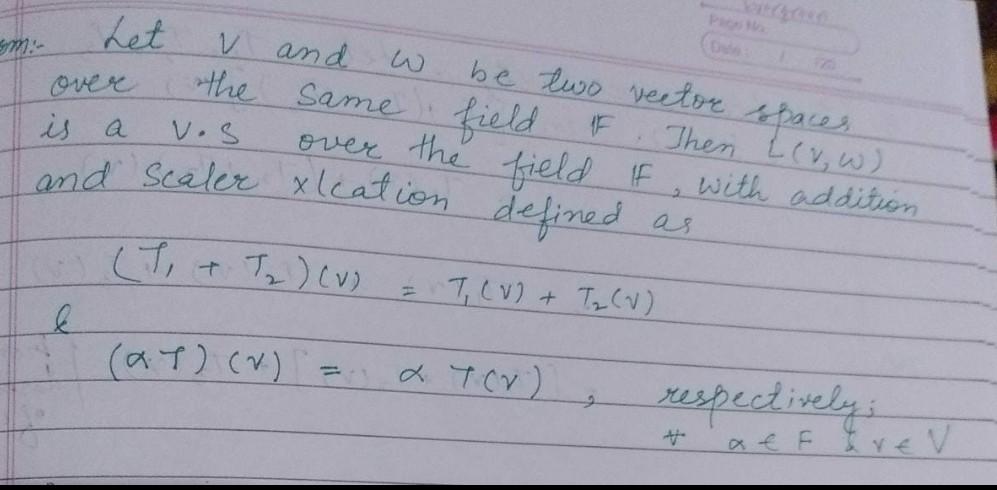 Let V and W be two vector spaces
over the same field IF. Then L(V,W)
is a V.S over the field IF, with addition
and Scaler xlcation defined as
(T₁ + T₂)(V) = T₁(V) + T₂(V)
&
(αT)(V) = αT(V), respectively;
∀ α ∈ F & v ∈ V
Page No.
Date: